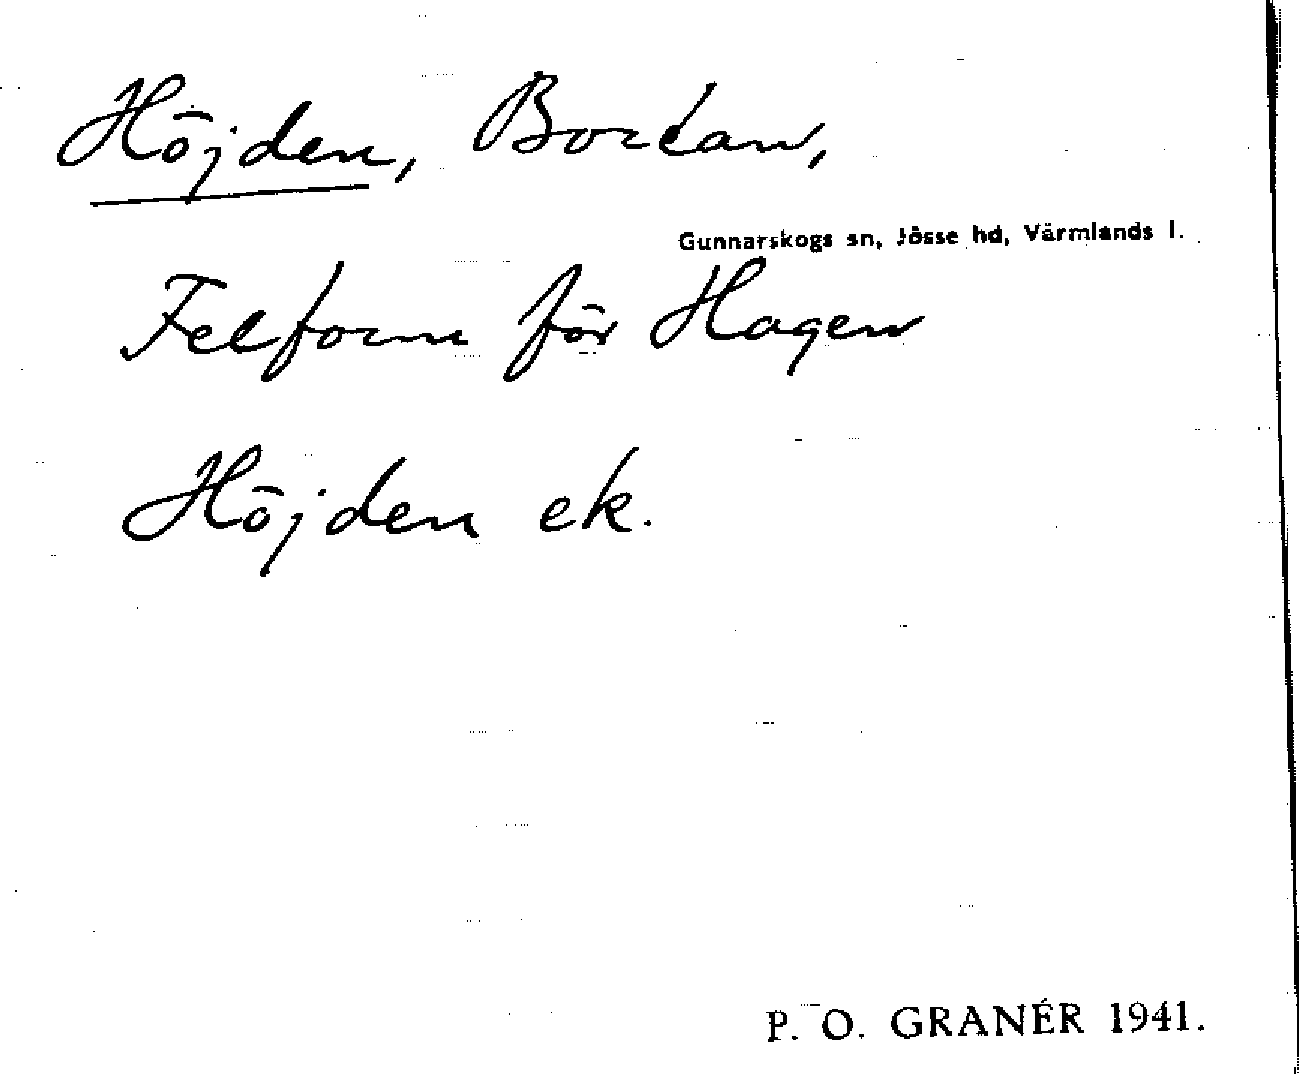 Höjden, Bortan,
Gunnarskogs sn, Jösse hd, Värmlands l.
Felform för Hagen
Höjden ek.
P. O. GRANÉR 1941.